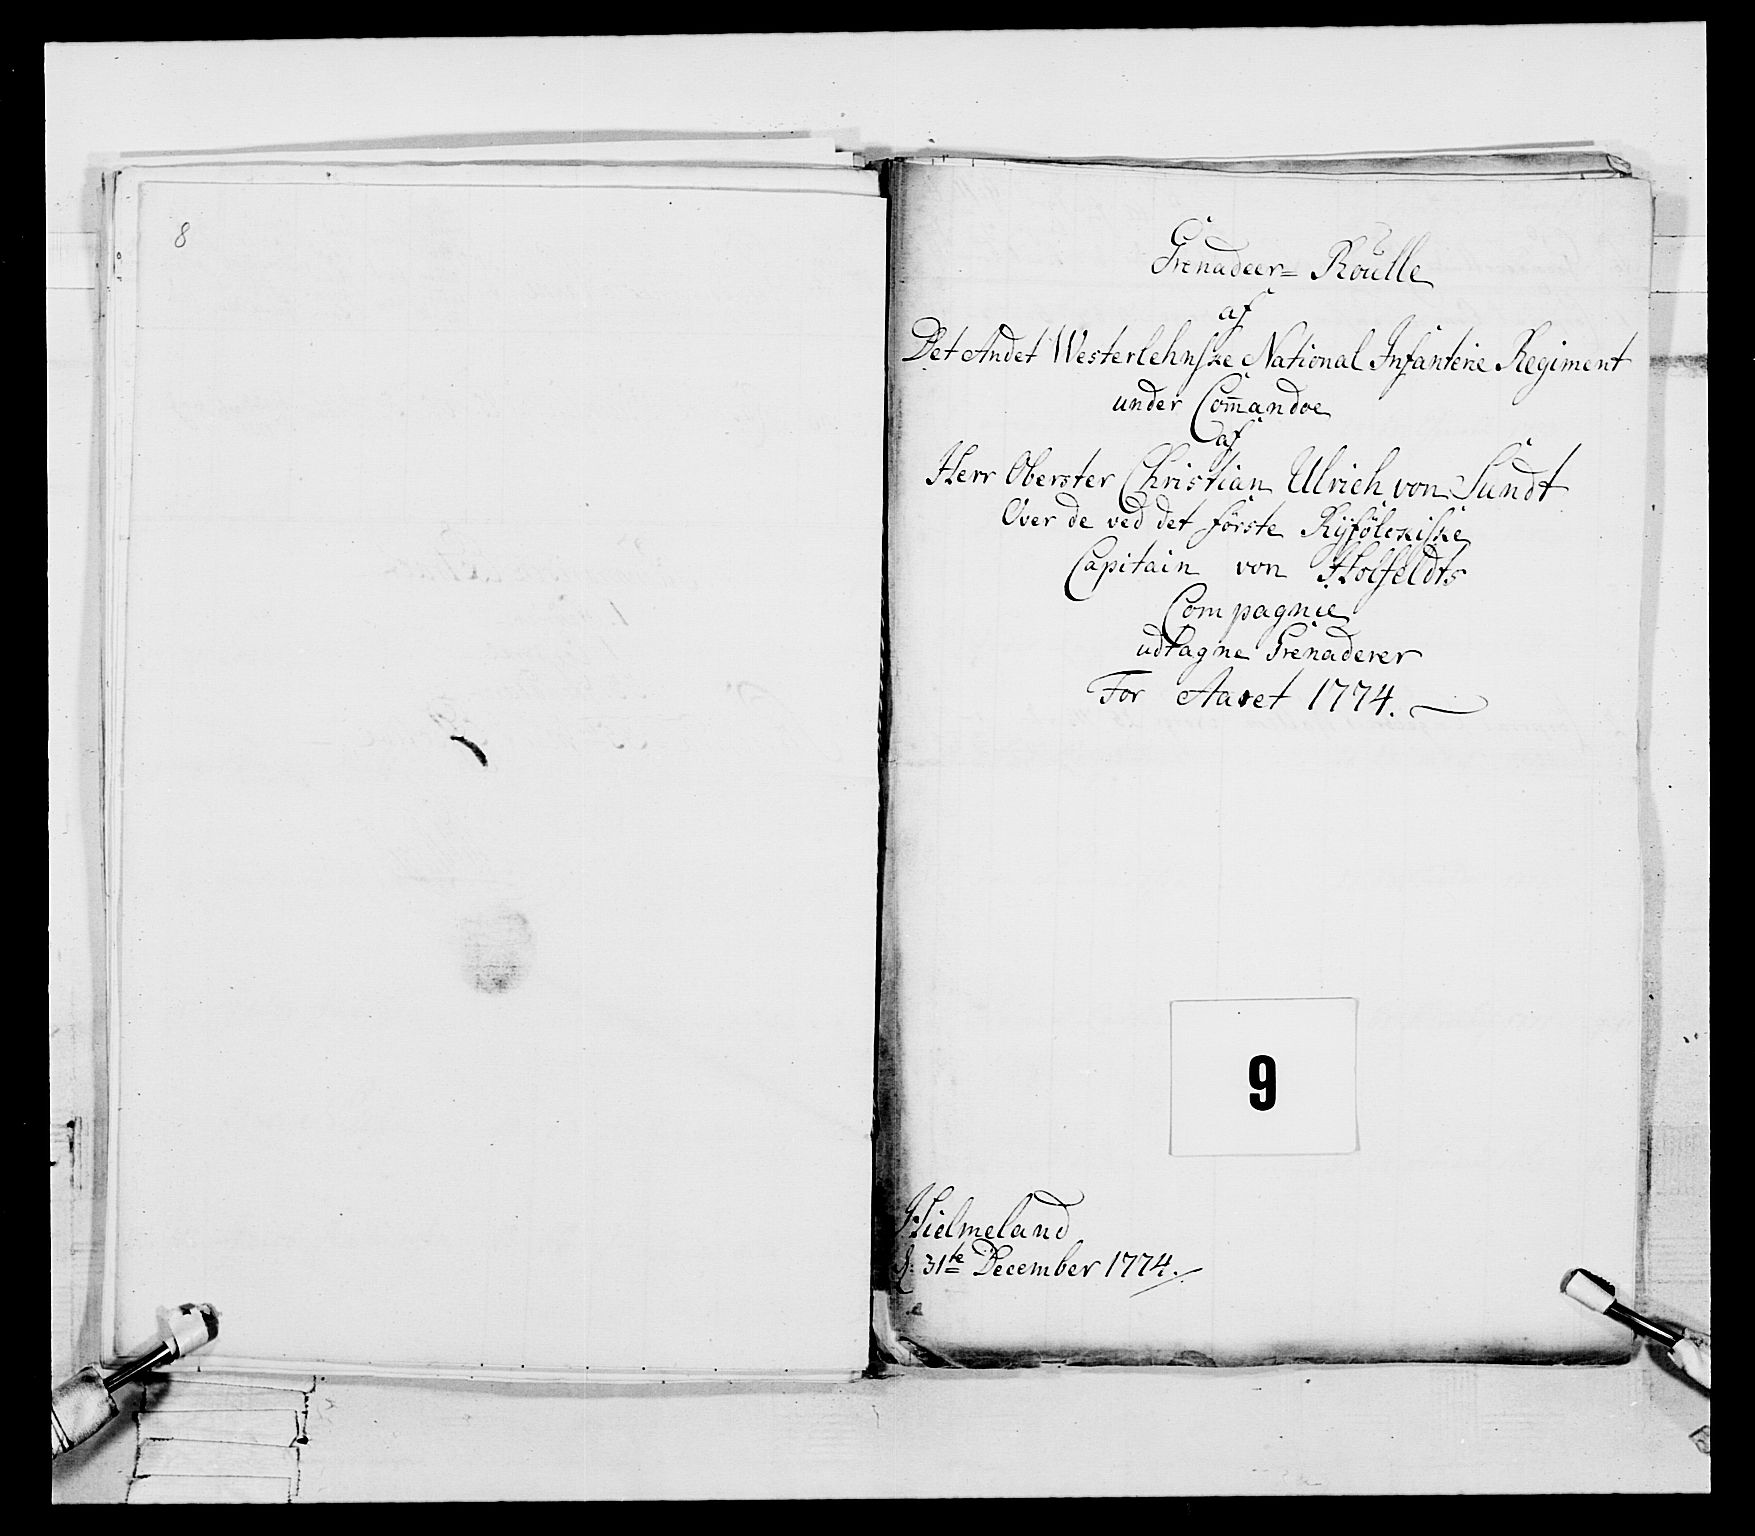 8
Grenadeer= Roulle
af
Det Andet Westerlehnske National Infanterie Regiment
under Com̄andoe
af
Herr Oberster Christian Ulrich von Sundt
Over de ved det förste Ryfölckiske
Capitain von Holfeldts
Compagnie
udtagne Grenaderer
For Aaret 1774.
9
Hielmeland
d: 31te December 1774.